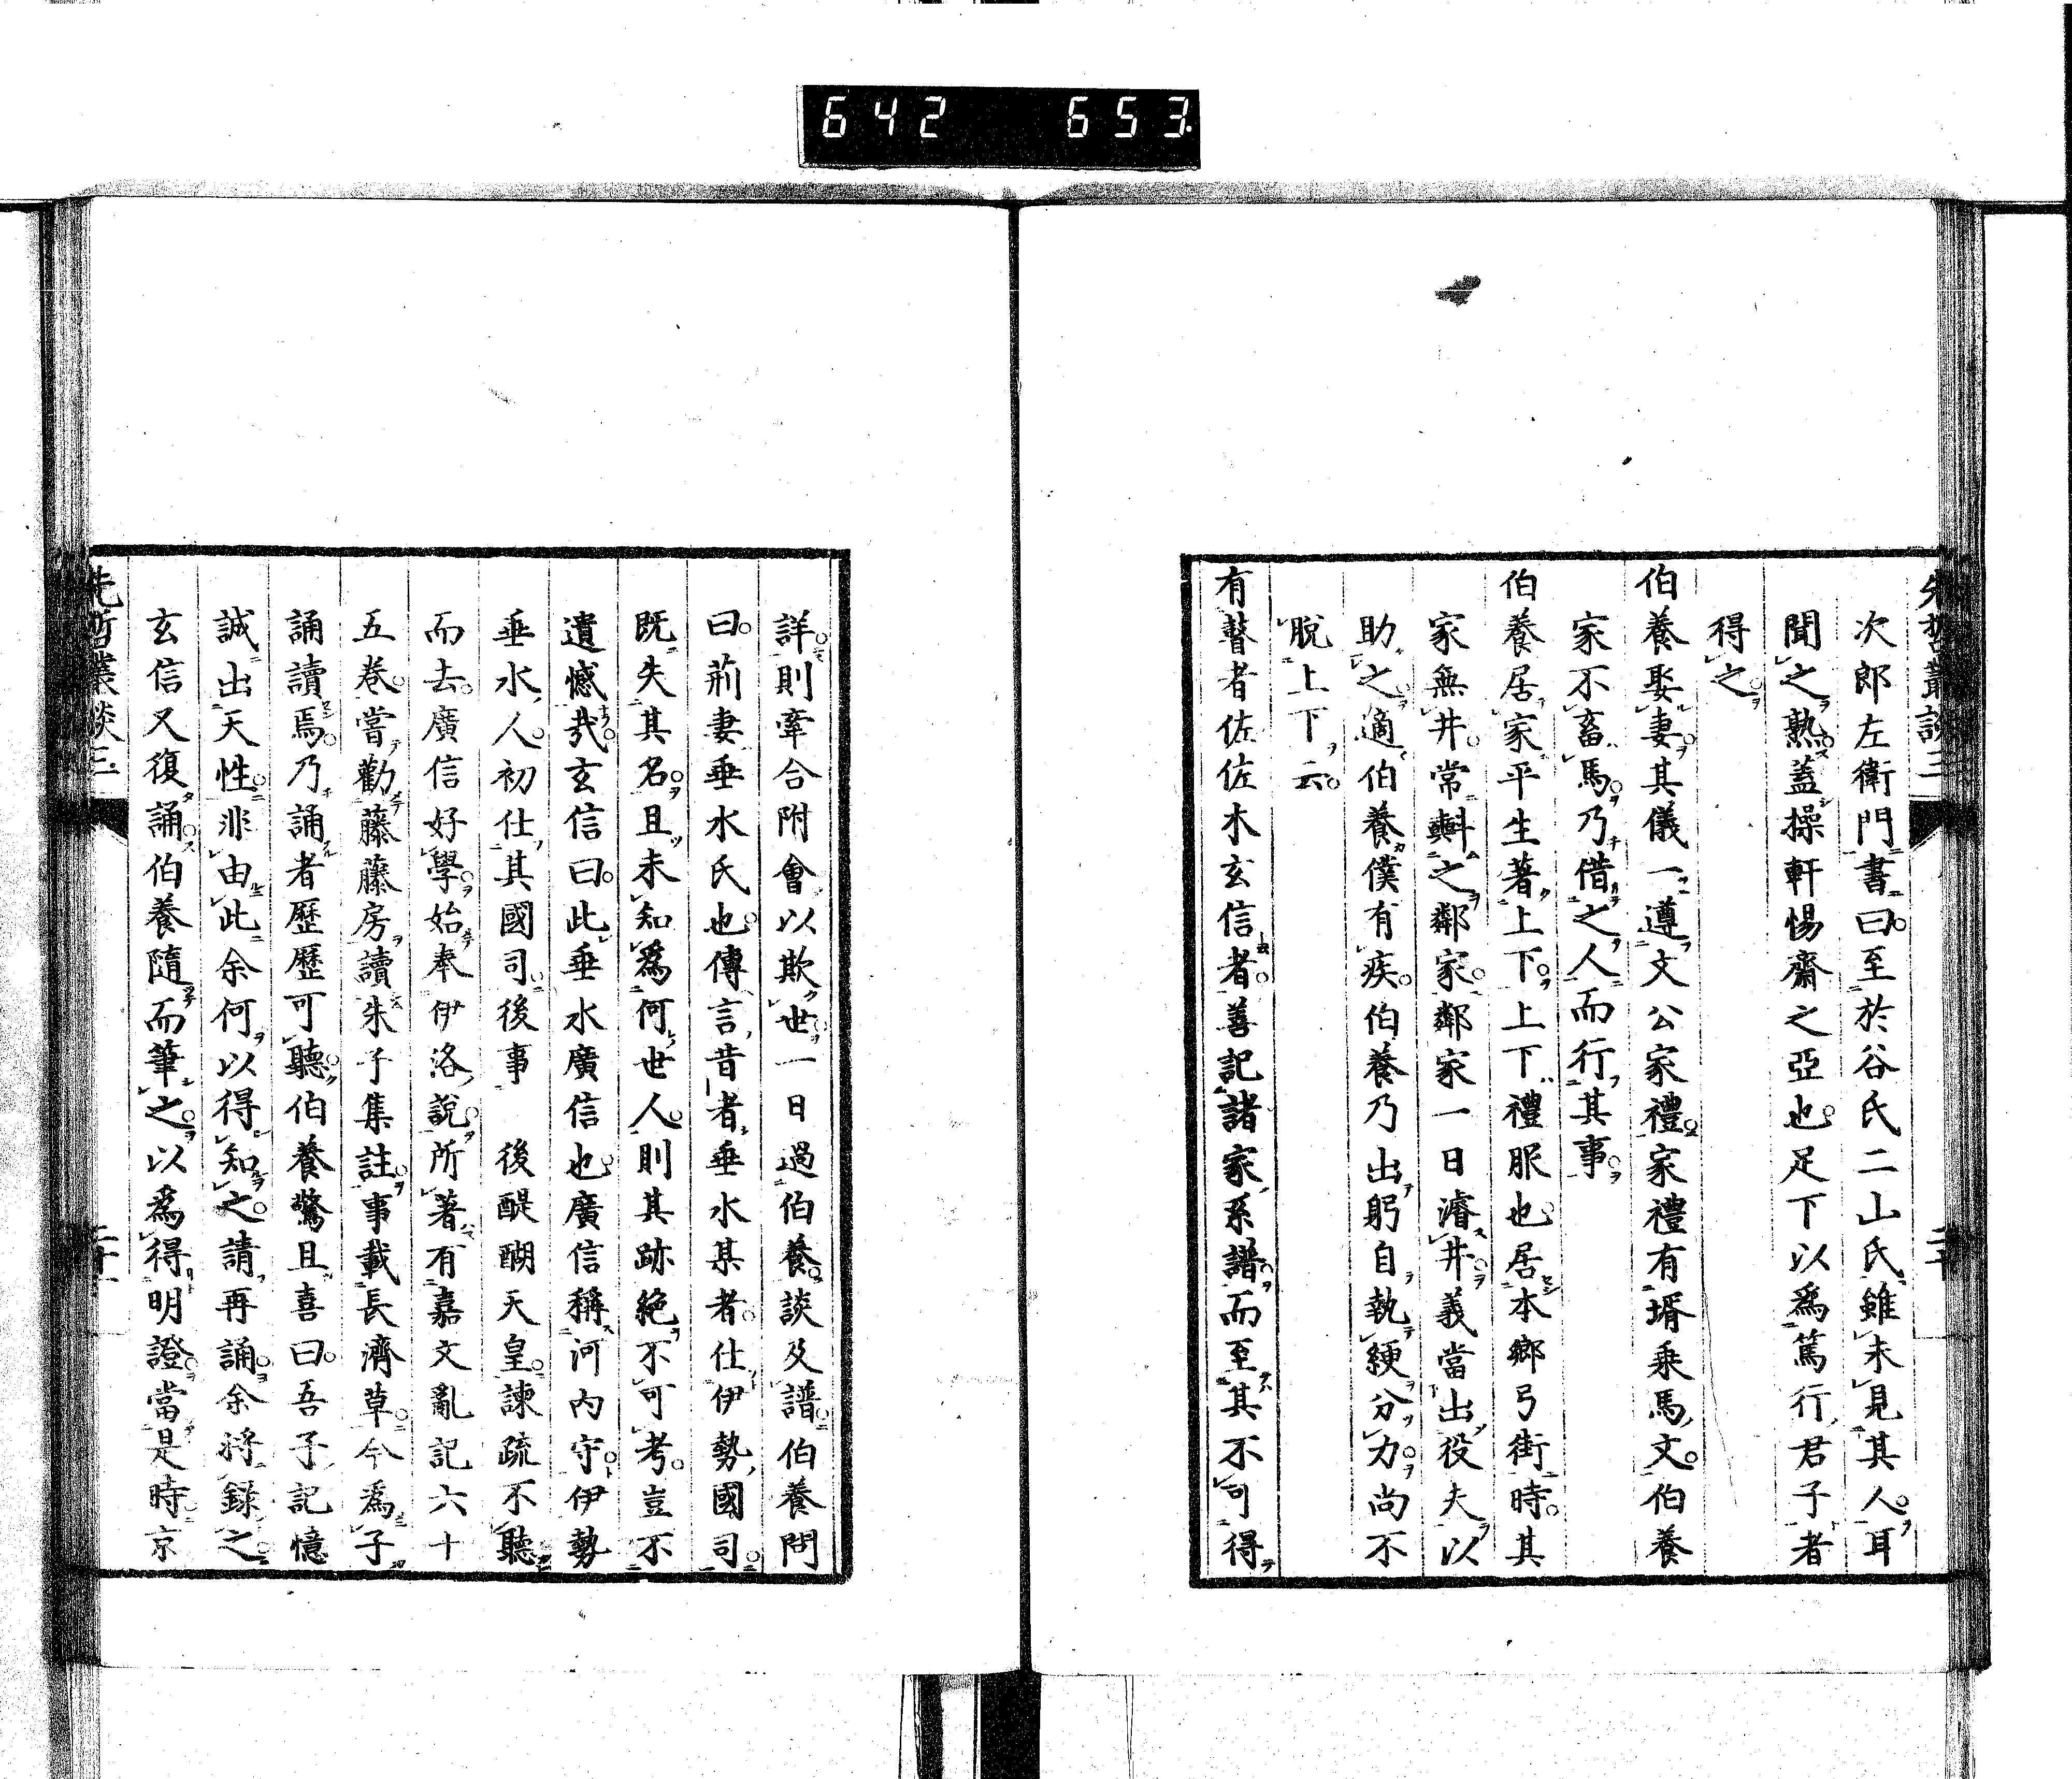 642 653.
次郎左衛門書曰。至於谷氏二山氏。雖未見其人。耳
聞之熟。蓋操軒惕齋之亞也。足下以爲篤行君子者
得之。
伯養娶妻。其儀一遵文公家禮。家禮有壻乘馬文。伯養
家不畜馬。乃借之人而行其事。
伯養居家平生著上下。上下禮服也。居本鄉弓街時。其
家無井。常㪺之鄰家。鄰家一日濬井。義當出役夫以
助之。適伯養僕有疾。伯養乃出躬自執綆分力。尚不
脫上下云。
有瞽者佐佐木玄信者。善記諸家系譜。而至其不可得
詳。則牽合附會以欺世。一日過伯養。談及譜。伯養問
曰。荊妻垂水氏也。傳言昔者垂水某者。仕伊勢國司。
既失其名。且未知爲何世人。則其跡絕不可考。豈不
遺憾哉。玄信曰。此垂水廣信也。廣信稱河內守。伊勢
垂水人。初仕其國司。後事 後醍醐天皇。諫疏不聽
而去。廣信好學。始奉伊洛說。所著有嘉文亂記六十
五卷。嘗勸藤藤房讀朱子集註。事載長濟草。今爲子
誦讀焉。乃誦者歷歷可聽。伯養驚且喜曰。吾子記憶
誠出天性。非由此余何以得知之。請再誦。余將錄之。
玄信又復誦。伯養隨而筆之。以爲得明證。當是時京
先哲叢談三